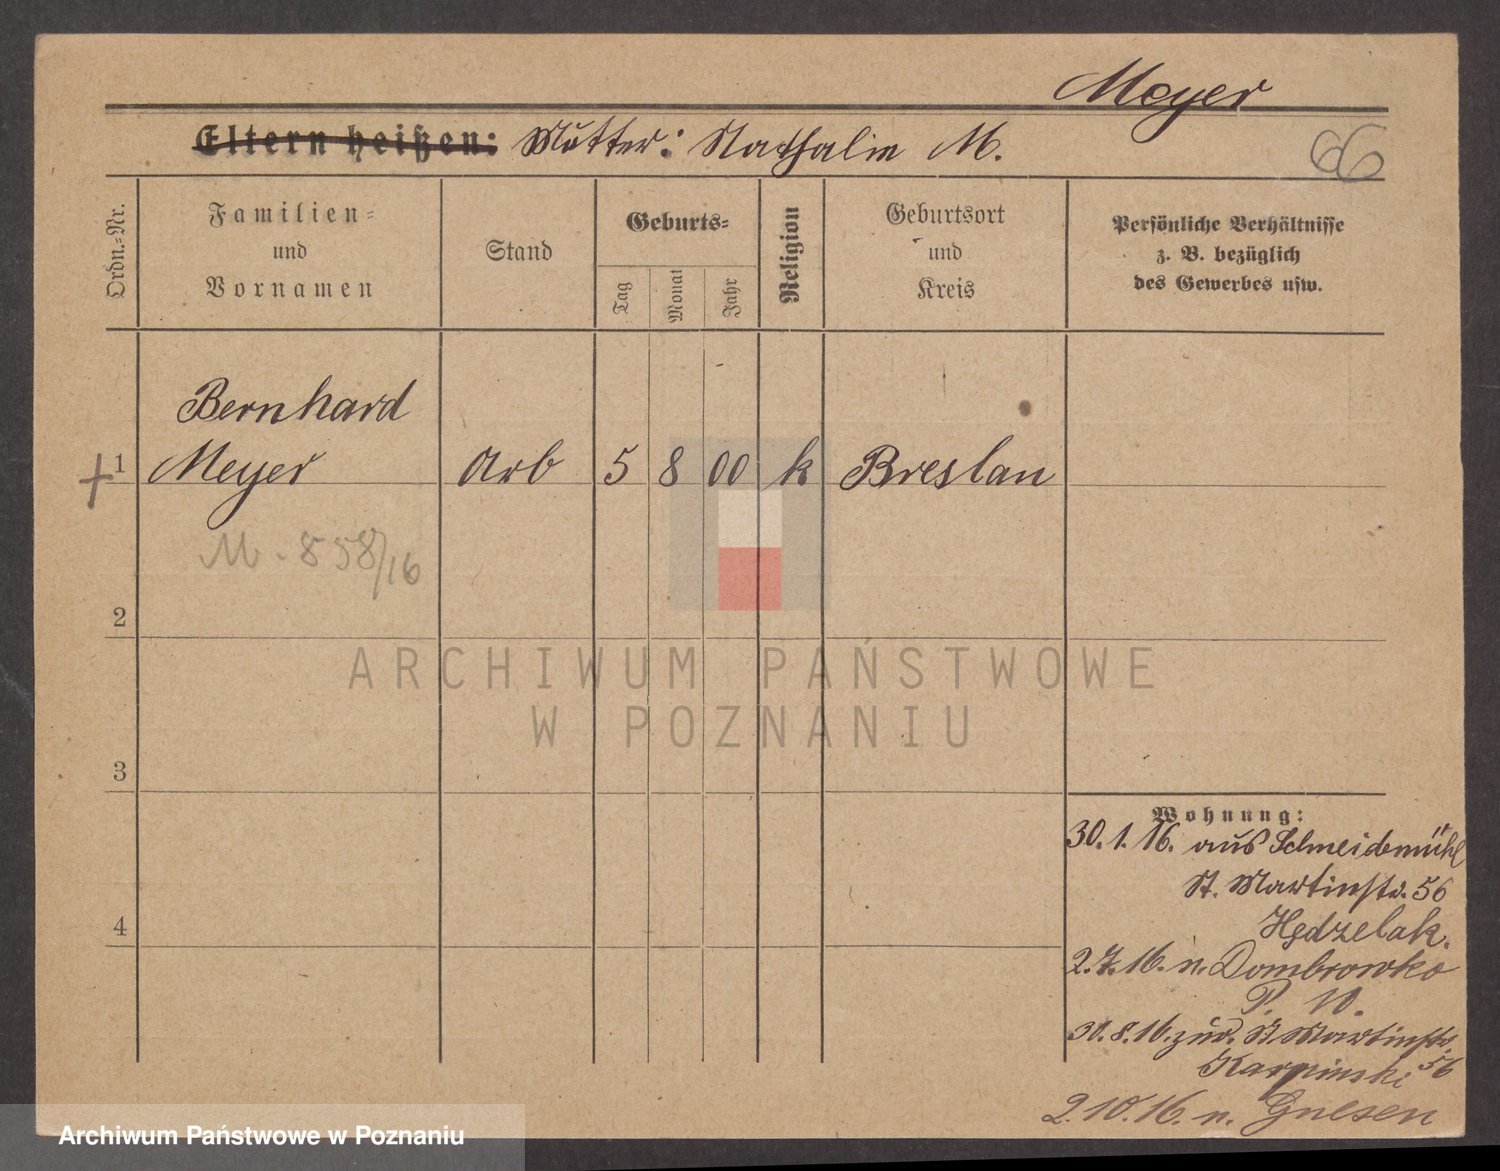 Meyer
Eltern heißen: Mutter: Nathalie M.
66
Ordn.-Nr.
Familien-
und
Vornamen
Stand
Geburts-
Tag
Monat
Jahr
Religion
Geburtsort
und
Kreis
Persönliche Verhältnisse
z. B. bezüglich
des Gewerbes usw.
Bernhard
+ 1 Meyer Arb 5 8 00 k Breslau
M. 858/16
2
ARCHIWUM PAŃSTWOWE
W POZNANIU
3
Wohnung:
30. 1. 16. aus Schneidemühl
St. Martinstr. 56
Hędzelak.
4
2. 7. 16. n. Dombrowko
P. W.
30. 8. 16. zur. St Martinstr.
56
Karpinski
2. 10. 16. n. Gnesen
Archiwum Państwowe w Poznaniu